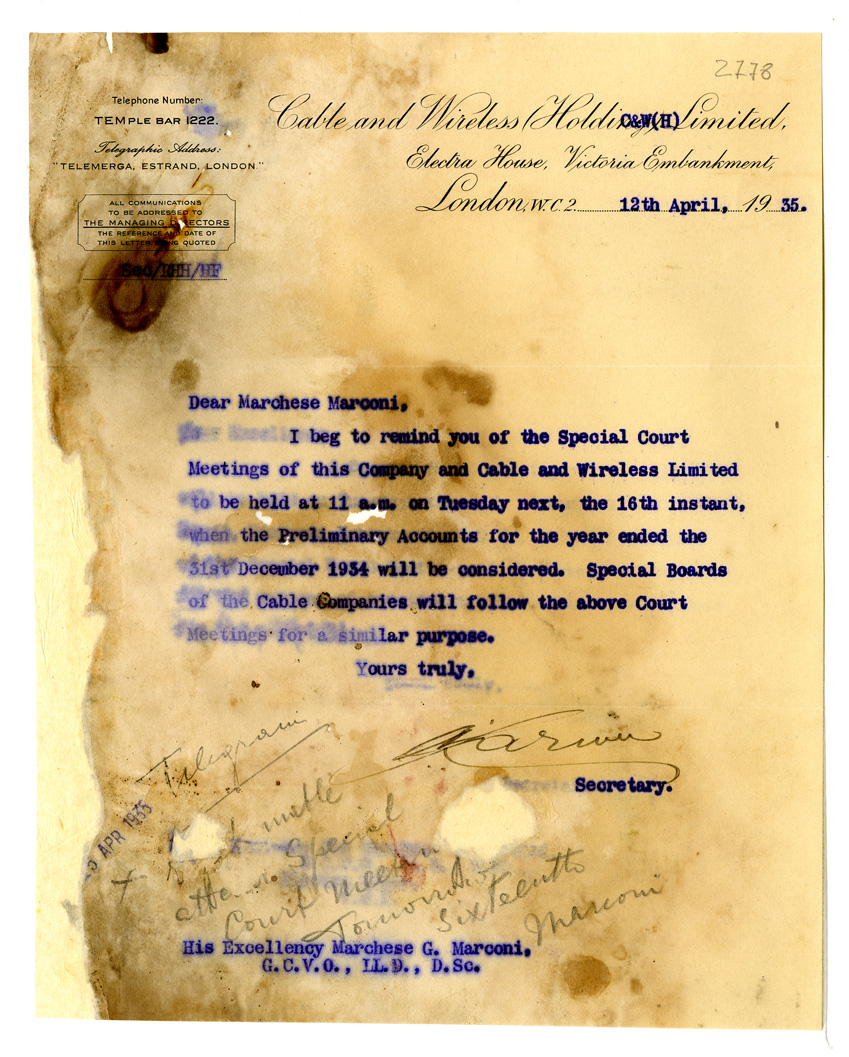 2778
Telephone Number:
TEMPLE BAR 1222.
Telegraphic Address:
"TELEMERGA, ESTRAND, LONDON."
ALL COMMUNICATIONS
TO BE ADDRESSED TO
THE MANAGING DIRECTORS
THE REFERENCE AND DATE OF
THIS LETTER BEING QUOTED
Sec/EHH/HF
Cable and Wireless (Holding) Limited,
C&W(H)
Electra House, Victoria Embankment,
London, W.C.2. 12th April, 19 35.
Dear Marchese Marconi,
I beg to remind you of the Special Court
Meetings of this Company and Cable and Wireless Limited
to be held at 11 a.m. on Tuesday next, the 16th instant,
when the Preliminary Accounts for the year ended the
31st December 1934 will be considered. Special Boards
of the Cable Companies will follow the above Court
Meetings for a similar purpose.
Yours truly,
Secretary.
Telegram
APR 1935
attend Special
Court Meeting
Tomorrow
Sixteenth
Marconi
His Excellency Marchese G. Marconi,
G.C.V.O., LL.D., D.Sc.